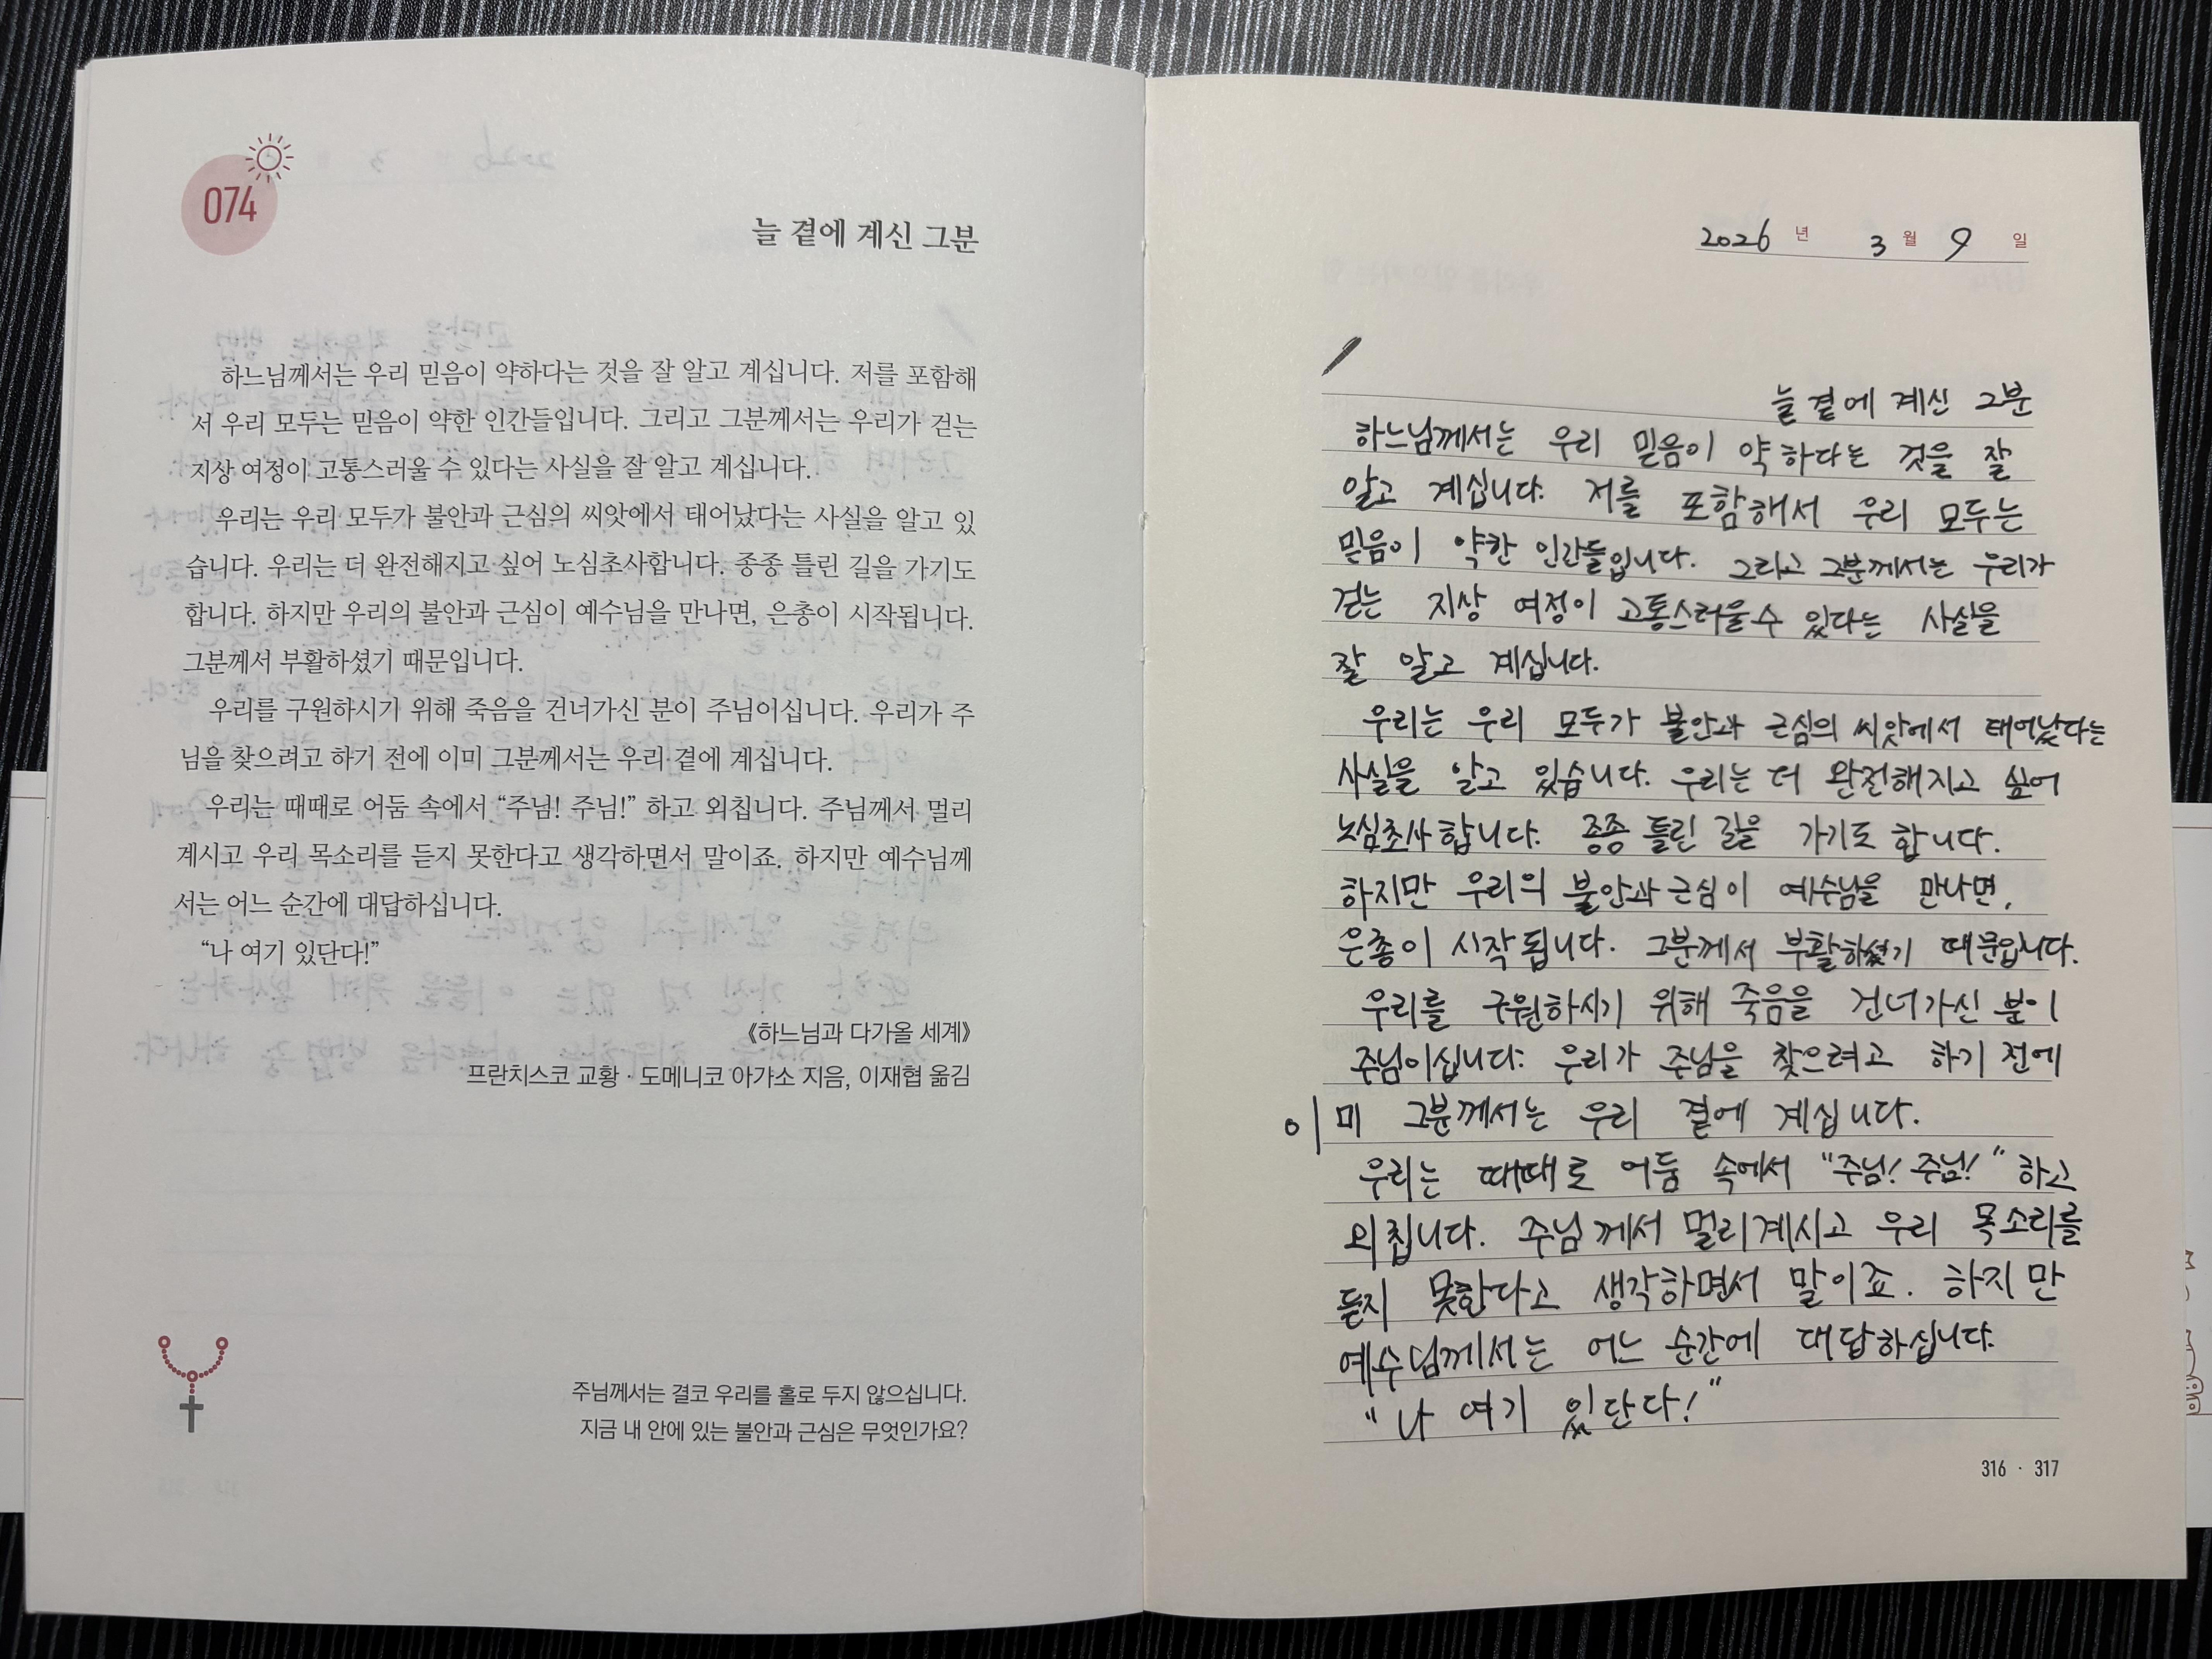 074
늘 곁에 계신 그분
하느님께서는 우리 믿음이 약하다는 것을 잘 알고 계십니다. 저를 포함해
서 우리 모두는 믿음이 약한 인간들입니다. 그리고 그분께서는 우리가 걷는
지상 여정이 고통스러울 수 있다는 사실을 잘 알고 계십니다.
우리는 우리 모두가 불안과 근심의 씨앗에서 태어났다는 사실을 알고 있
습니다. 우리는 더 완전해지고 싶어 노심초사합니다. 종종 틀린 길을 가기도
합니다. 하지만 우리의 불안과 근심이 예수님을 만나면, 은총이 시작됩니다.
그분께서 부활하셨기 때문입니다.
우리를 구원하시기 위해 죽음을 건너가신 분이 주님이십니다. 우리가 주
님을 찾으려고 하기 전에 이미 그분께서는 우리 곁에 계십니다.
우리는 때때로 어둠 속에서 “주님! 주님!” 하고 외칩니다. 주님께서 멀리
계시고 우리 목소리를 듣지 못한다고 생각하면서 말이죠. 하지만 예수님께
서는 어느 순간에 대답하십니다.
“나 여기 있단다!”
《하느님과 다가올 세계》
프란치스코 교황 · 도메니코 아갸소 지음, 이재협 옮김
주님께서는 결코 우리를 홀로 두지 않으십니다.
지금 내 안에 있는 불안과 근심은 무엇인가요?
2026 년 3 월 9 일
늘 곁에 계신 그분
하느님께서는 우리 믿음이 약하다는 것을 잘
알고 계십니다. 저를 포함해서 우리 모두는
믿음이 약한 인간들입니다. 그리고 그분께서는 우리가
걷는 지상 여정이 고통스러울수 있다는 사실을
잘 알고 계십니다.
우리는 우리 모두가 불안과 근심의 씨앗에서 태어났다는
사실을 알고 있습니다. 우리는 더 완전해지고 싶어
노심초사합니다. 종종 틀린 길을 가기도 합니다.
하지만 우리의 불안과 근심이 예수님을 만나면,
은총이 시작됩니다. 그분께서 부활하셨기 때문입니다.
우리를 구원하시기 위해 죽음을 건너가신 분이
주님이십니다. 우리가 주님을 찾으려고 하기 전에
이미 그분께서는 우리 곁에 계십니다.
우리는 때때로 어둠 속에서 “주님! 주님!” 하고
외칩니다. 주님께서 멀리계시고 우리 목소리를
듣지 못한다고 생각하면서 말이죠. 하지만
예수님께서는 어느 순간에 대답하십니다.
“나 여기 있단다!”
316 · 317